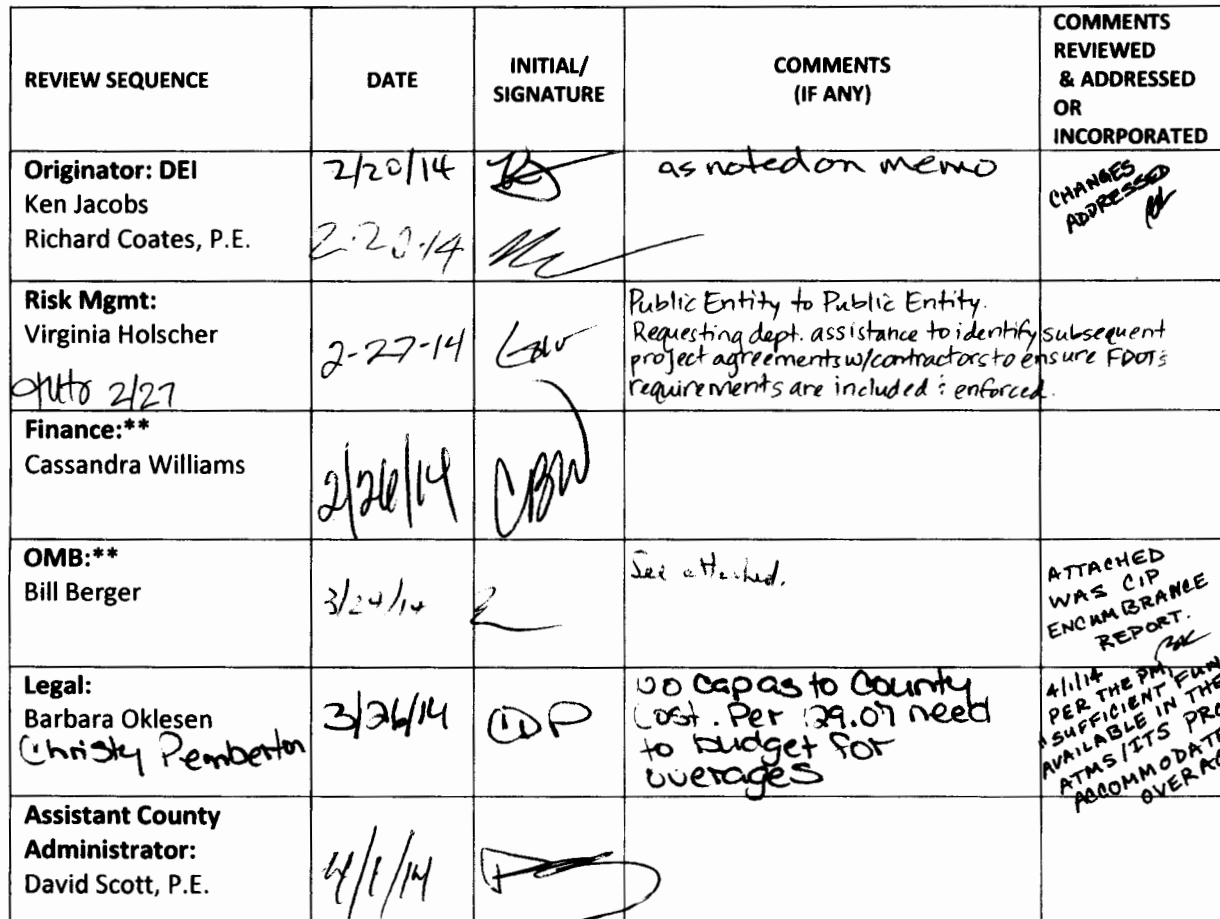 REVIEW SEQUENCE
DATE
INITIAL/
SIGNATURE
COMMENTS
(IF ANY)
COMMENTS
REVIEWED
& ADDRESSED
OR
INCORPORATED
Originator: DEI
Ken Jacobs
Richard Coates, P.E.
2/20/14
2-20-14
as noted on memo
CHANGES
ADDRESSED
Risk Mgmt:
Virginia Holscher
2/27
2-27-14
Public Entity to Public Entity.
Requesting dept. assistance to identify subsequent
project agreements w/contractors to ensure FDOT's
requirements are included & enforced.
Finance:**
Cassandra Williams
2/26/14
CBW
OMB:**
Bill Berger
3/24/14
See attached.
ATTACHED
WAS CIP
ENCUMBRANCE
REPORT.
Legal:
Barbara Oklesen
Christy Pemberton
3/26/14
CDP
No cap as to County
Cost. Per 29.07 need
to budget for
overages
4/1/14
PER THE PM,
"SUFFICIENT FUN
AVAILABLE IN THE
ATMS/ITS PRO
ACCOMMODATE
OVERAG
Assistant County
Administrator:
David Scott, P.E.
4/1/14